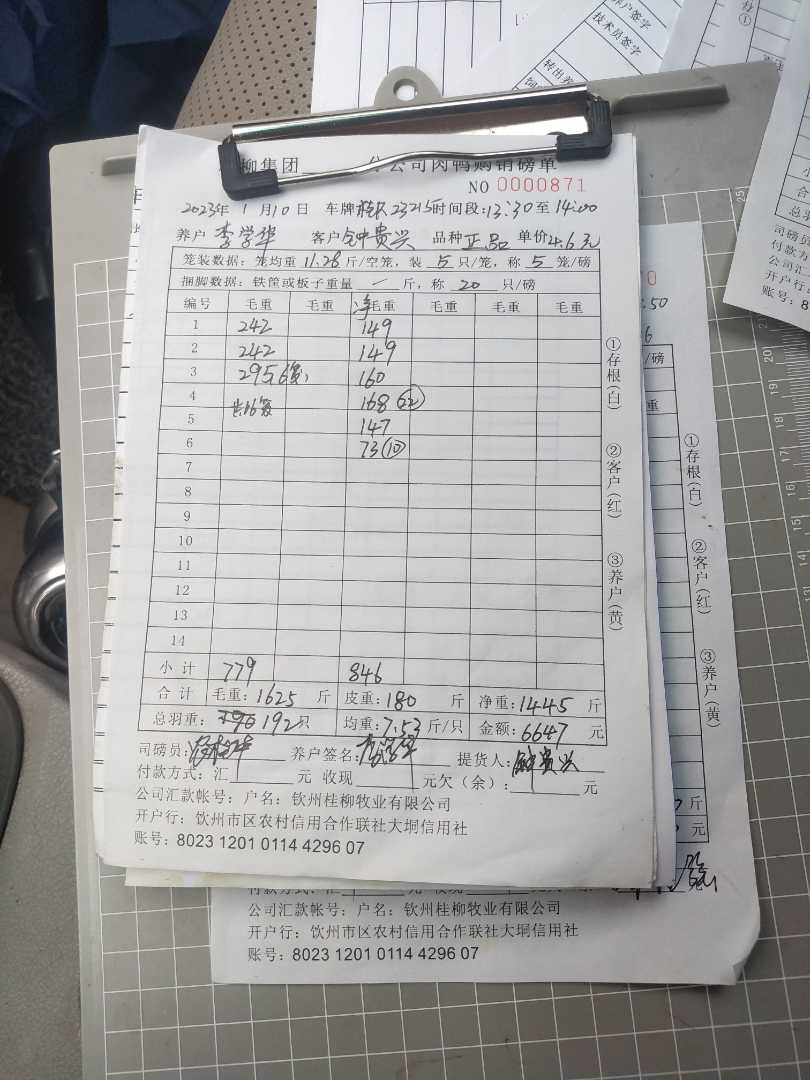 柳集团 分公司肉鸭购销磅单
NO 0000871
2023年 1月10日 车牌 23215 时间段:13:30至14:00
养户 李学华 客户 钟贵兴 品种 正品 单价4.6元
笼装数据:笼均重 11.28 斤/空笼,装 5 只/笼,称 5 笼/磅
捆脚数据:铁筐或板子重量 一 斤,称 20 只/磅
编号 毛重 毛重 净毛重 毛重 毛重 毛重
1 242 149
2 242 149
3 295.6 160
4 共16笼 168 (22)
5 147
6 73 (10)
7
8
9
10
11
12
13
14
小计 779 846
合计 毛重:1625 斤 皮重:180 斤 净重:1445 斤
总羽重: 192只 均重:7.53斤/只 金额:6647 元
司磅员: 养户签名:李学华 提货人:钟贵兴
付款方式:汇 元 收现 元欠(余): 元
公司汇款帐号:户名:钦州桂柳牧业有限公司
开户行:钦州市区农村信用合作联社大垌信用社
账号:8023 1201 0114 4296 07
①存根(白)
②客户(红)
③养户(黄)
0
:50
6
/磅
重
①存根(白)
②客户(红)
③养户(黄)
斤
元
公司汇款帐号:户名:钦州桂柳牧业有限公司
开户行:钦州市区农村信用合作联社大垌信用社
账号:8023 1201 0114 4296 07
养户签字
技术员签字
转出养
饲
小
合
总羽
司磅员
付款方
公司汇
开户行
账号:8